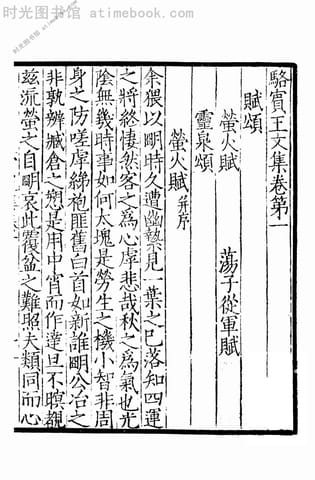 时光图书馆 atimebook.com
駱賓王文集卷第一
賦頌
螢火賦 蕩子從軍賦
靈泉頌
螢火賦并序
余猥以明時久遭幽縶見一葉之已落知四運
之將終悽然客之爲心虖悲哉秋之爲氣也光
陰無幾時事如何大塊是勞生之機小智非周
身之防嗟虖綈袍匪舊白首如新誰明公冶之
非孰辨臧倉之愬是用中宵而作達旦不暝覩
茲流螢之自明哀此覆盆之難照夫類同而心